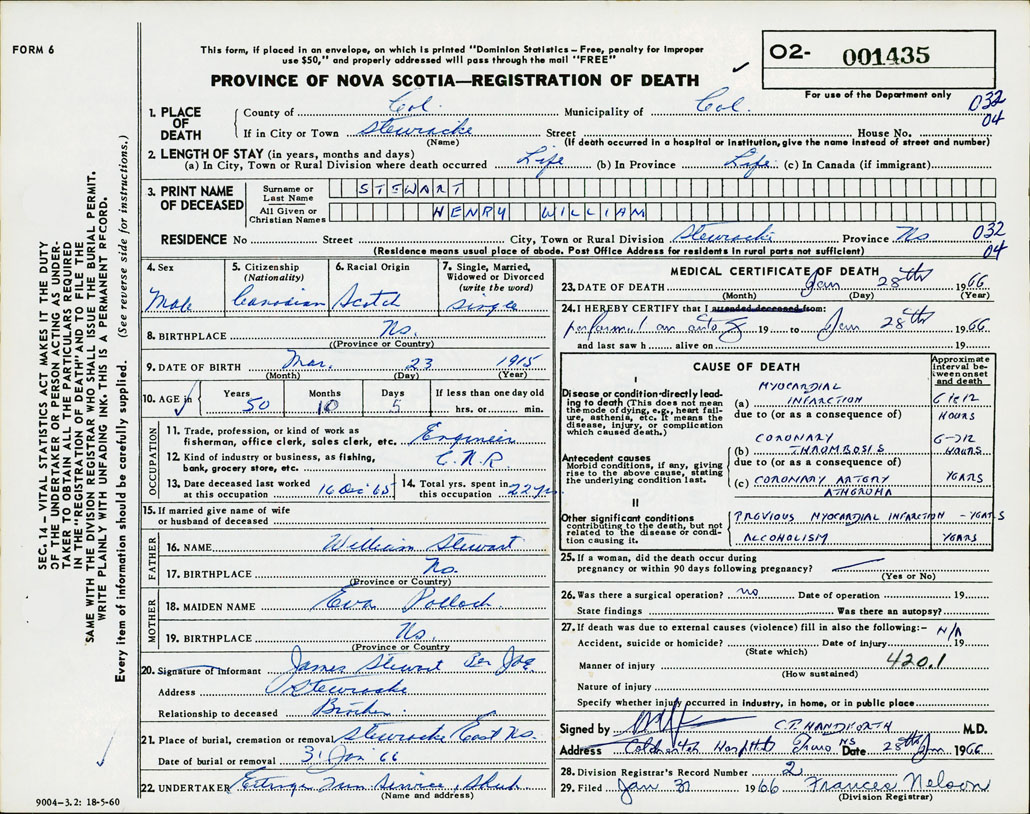 FORM 6
This form, if placed in an envelope, on which is printed "Dominion Statistics – Free, penalty for improper
use $50," and properly addressed will pass through the mail "FREE"
PROVINCE OF NOVA SCOTIA—REGISTRATION OF DEATH
O2- 001435
For use of the Department only
032
04
1. PLACE OF DEATH
County of Col. Municipality of Col.
If in City or Town Stewiacke Street House No.
(Name) (If death occurred in a hospital or institution, give the name instead of street and number)
2. LENGTH OF STAY (in years, months and days)
(a) In City, Town or Rural Division where death occurred Life (b) In Province Life (c) In Canada (if immigrant)
3. PRINT NAME OF DECEASED
Surname or Last Name STEWART
All Given or Christian Names HENRY WILLIAM
032
04
RESIDENCE No Street City, Town or Rural Division Stewiacke Province Ns
(Residence means usual place of abode. Post Office Address for residents in rural parts not sufficient)
4. Sex Male
5. Citizenship (Nationality) Canadian
6. Racial Origin Scotch
7. Single, Married, Widowed or Divorced (write the word) single
8. BIRTHPLACE Ns.
(Province or Country)
9. DATE OF BIRTH Mar. 23 1915
(Month) (Day) (Year)
10. AGE in Years 50 Months 10 Days 5 If less than one day old
hrs. or min.
OCCUPATION
11. Trade, profession, or kind of work as
fisherman, office clerk, sales clerk, etc. Engineer
12. Kind of industry or business, as fishing,
bank, grocery store, etc. C.N.R.
13. Date deceased last worked
at this occupation 16 Dec 65
14. Total yrs. spent in
this occupation 22 yrs
15. If married give name of wife
or husband of deceased
FATHER
16. NAME William Stewart
17. BIRTHPLACE Ns.
(Province or Country)
MOTHER
18. MAIDEN NAME Eva Pollock
19. BIRTHPLACE Ns.
(Province or Country)
20. Signature of informant James Stewart Per
Address Stewiacke
Relationship to deceased Brother
21. Place of burial, cremation or removal Stewiacke East Ns.
Date of burial or removal 31 Jan 66
22. UNDERTAKER
(Name and address)
9004–3.2: 18-5-60
MEDICAL CERTIFICATE OF DEATH
23. DATE OF DEATH Jan 28th 1966
(Month) (Day) (Year)
24. I HEREBY CERTIFY that I attended deceased from:
19 to Jan 28th 1966
and last saw h alive on 19
CAUSE OF DEATH
Approximate interval between onset and death
I
Disease or condition directly leading to death (This does not mean the mode of dying, e.g., heart failure, asthenia, etc. It means the disease, injury, or complication which caused death.)
(a) MYOCARDIAL INFARCTION HOURS
due to (or as a consequence of)
Antecedent causes
Morbid conditions, if any, giving rise to the above cause, stating the underlying condition last.
(b) CORONARY THROMBOSIS HOURS
due to (or as a consequence of)
(c) CORONARY ARTERY ATHEROMA YEARS
II
Other significant conditions contributing to the death, but not related to the disease or condition causing it.
PREVIOUS MYOCARDIAL INFARCTION - YEARS
ALCOHOLISM YEARS
25. If a woman, did the death occur during
pregnancy or within 90 days following pregnancy?
(Yes or No)
26. Was there a surgical operation? no Date of operation 19
State findings Was there an autopsy?
27. If death was due to external causes (violence) fill in also the following:– N/A
Accident, suicide or homicide? Date of injury 19
(State which)
Manner of injury 420.1
(How sustained)
Nature of injury
Specify whether injury occurred in industry, in home, or in public place
Signed by M.D.
Address Colchester Truro NS Date 28th Jan 1966
28. Division Registrar's Record Number 2
29. Filed Jan 31 1966 Frances Nelson
(Division Registrar)
SEC. 14 – VITAL STATISTICS ACT MAKES IT THE DUTY
OF THE UNDERTAKER OR PERSON ACTING AS UNDER-
TAKER TO OBTAIN ALL THE PARTICULARS REQUIRED
IN THE "REGISTRATION OF DEATH" AND TO FILE THE
SAME WITH THE DIVISION REGISTRAR WHO SHALL ISSUE THE BURIAL PERMIT.
WRITE PLAINLY WITH UNFADING INK. THIS IS A PERMANENT RECORD.
Every item of information should be carefully supplied. (See reverse side for instructions.)